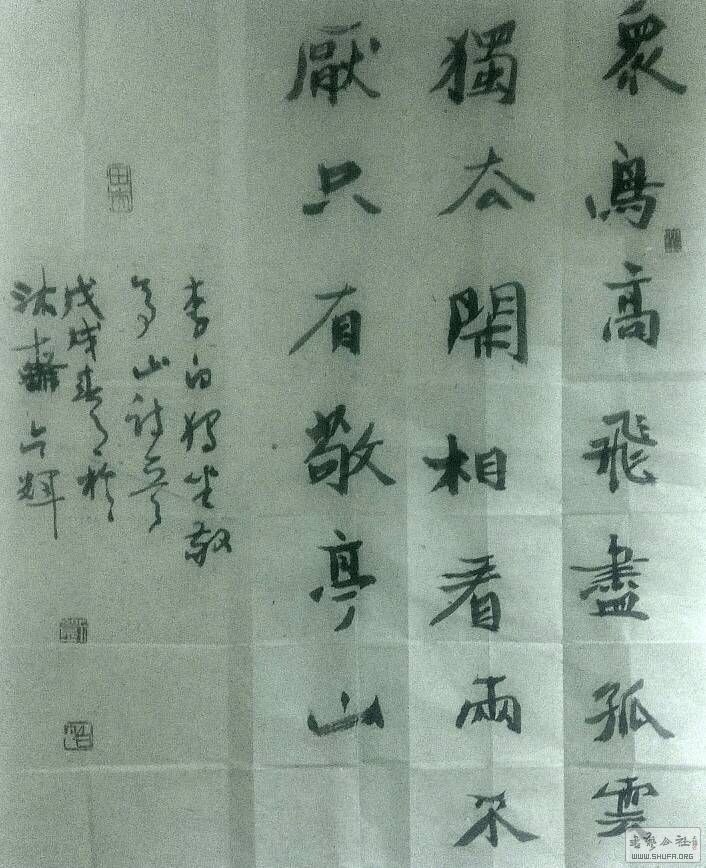 衆鳥高飛盡孤雲
獨去閑相看兩不
厭只有敬亭山
李白独坐敬
亭山詩
戊戌春月於
沐 輝
書藝公社
WWW.SHUFA.ORG